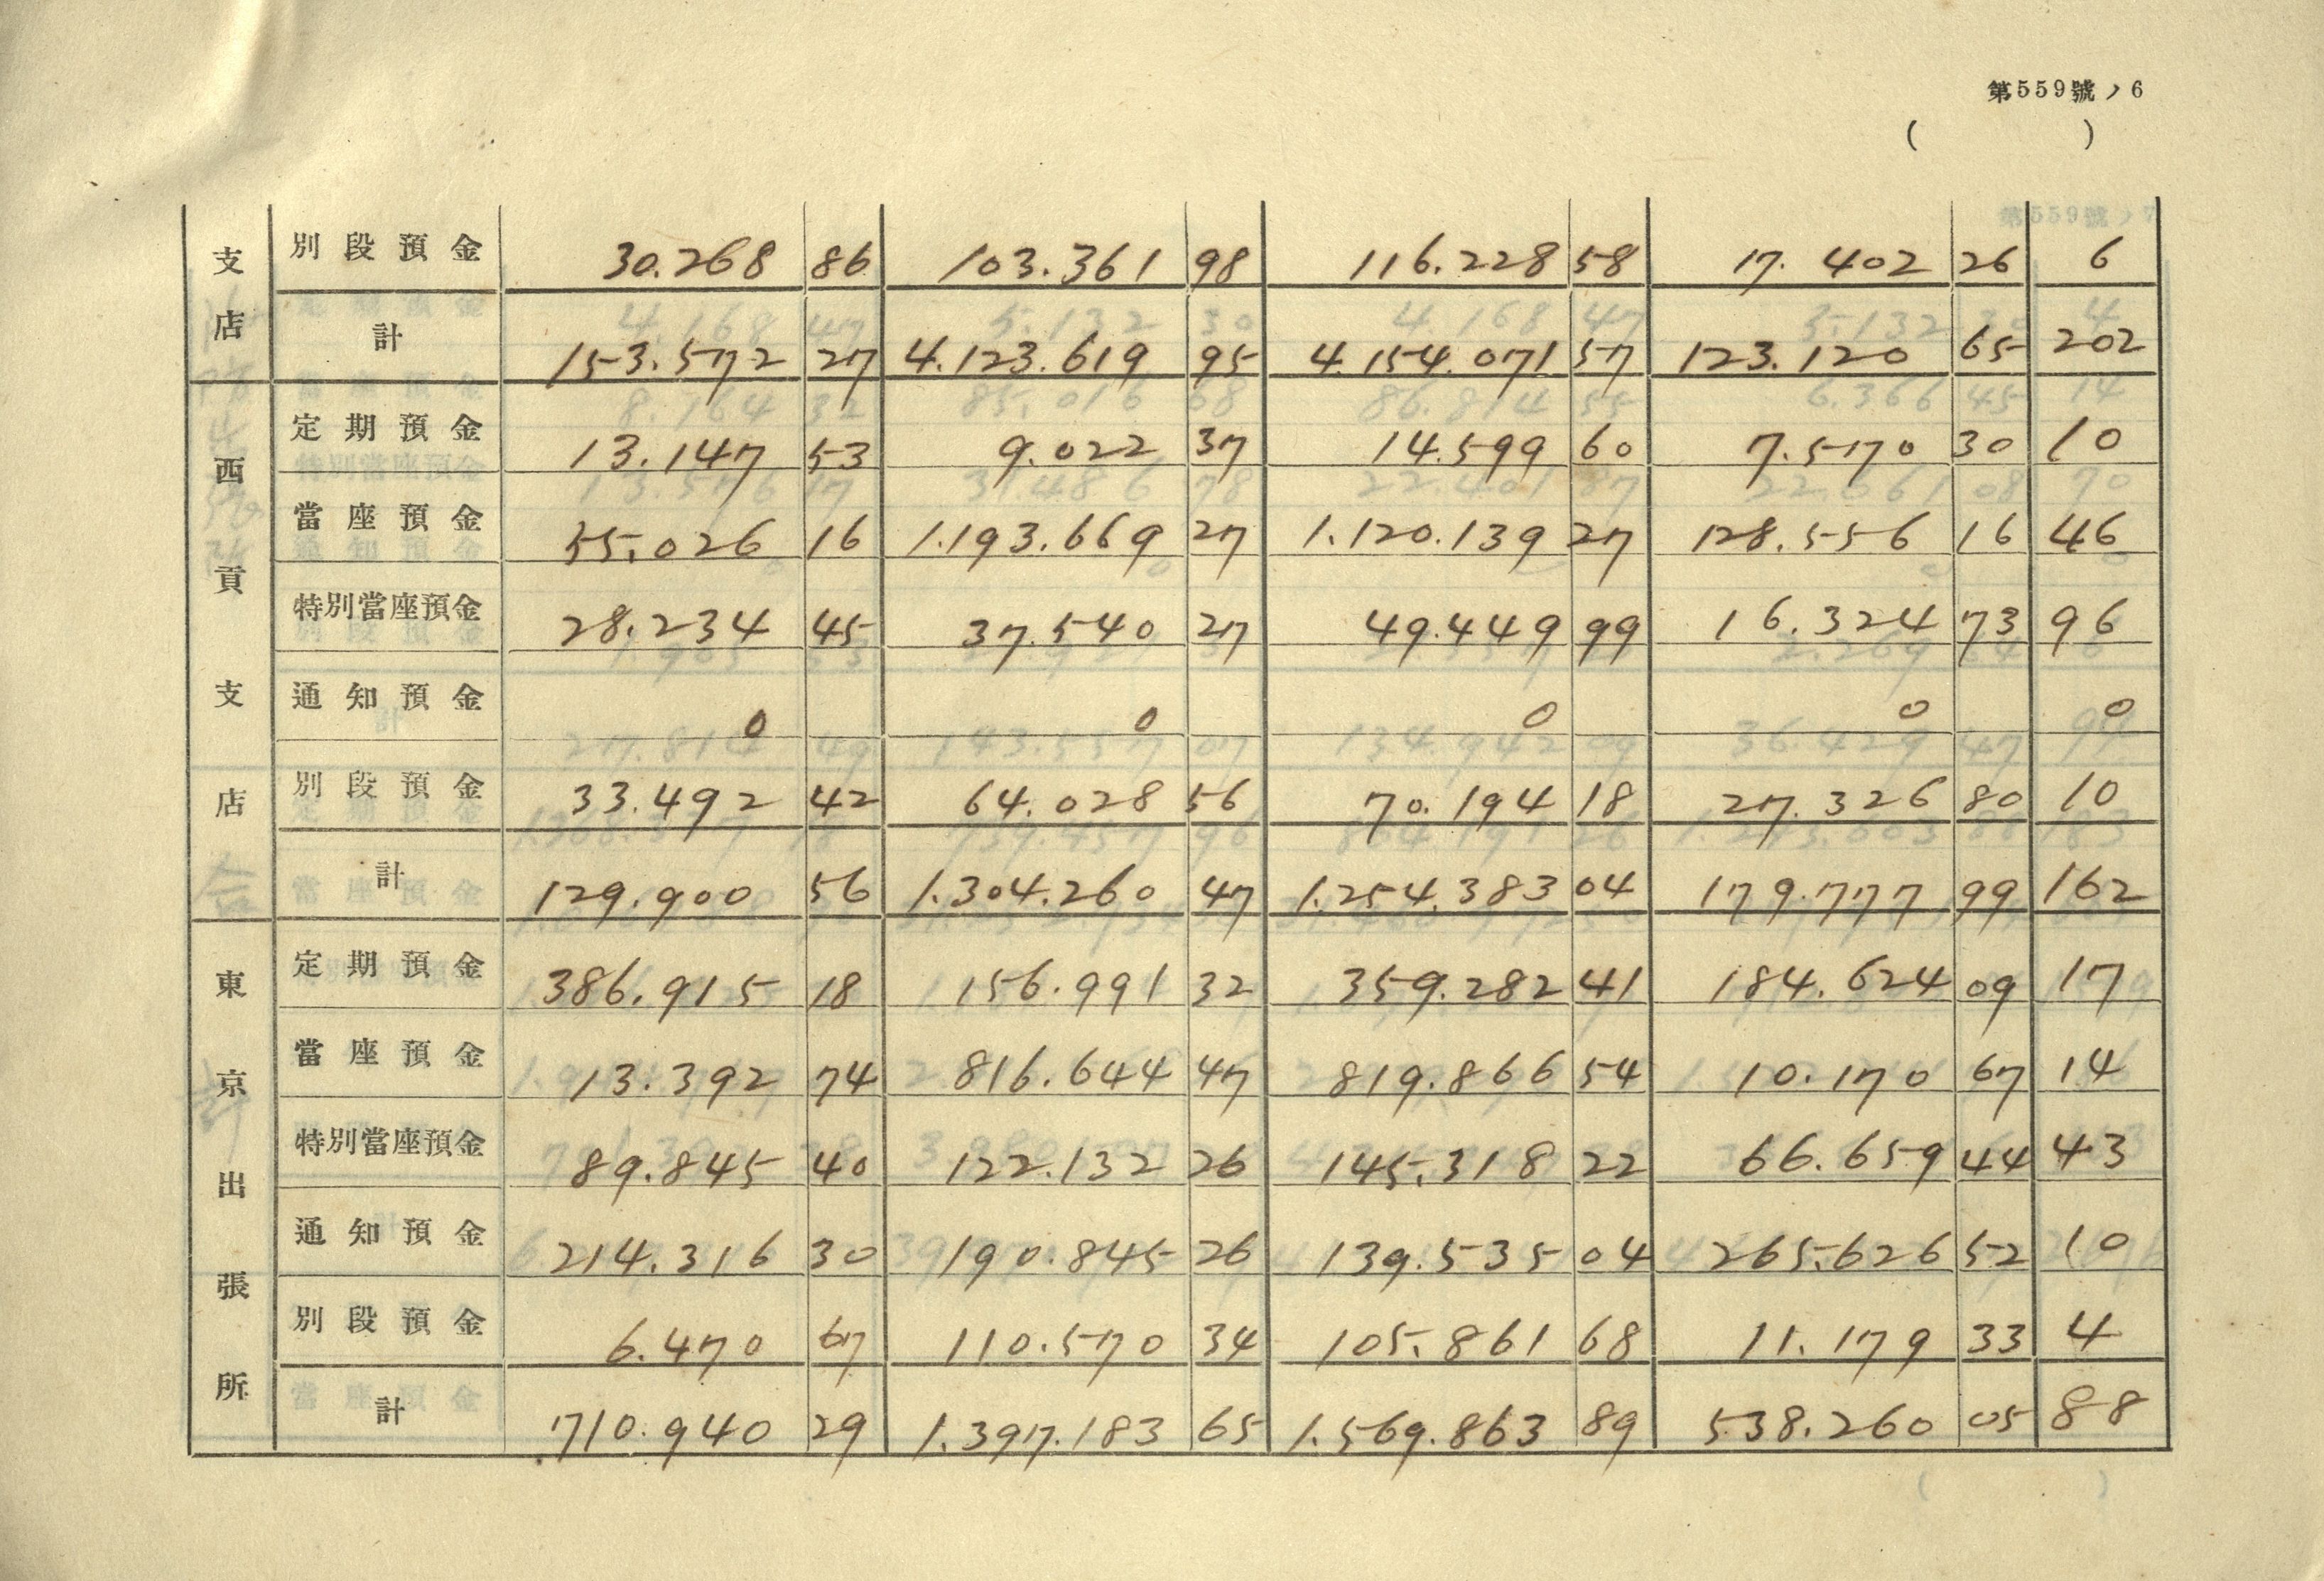 第559號ノ6
( )
支店 別段預金 30.268 86 103.361 98 116.228 58 17.402 26 6
計 153.572 27 4.123.619 95 4.154.071 57 123.120 65 202
西貢支店 定期預金 13.147 53 9.022 37 14.599 60 7.570 30 10
當座預金 55.026 16 1.193.669 27 1.120.139 27 128.556 16 46
特別當座預金 28.234 45 37.540 27 49.449 99 16.324 73 96
通知預金 0 0 0 0 0
別段預金 33.492 42 64.028 56 70.194 18 27.326 80 10
計 129.900 56 1.304.260 47 1.254.383 04 179.777 99 162
東京出張所 定期預金 386.915 18 156.991 32 359.282 41 184.624 09 17
當座預金 13.392 74 816.644 47 819.866 54 10.170 67 14
特別當座預金 89.845 40 122.132 26 145.318 22 66.659 44 43
通知預金 214.316 30 190.845 26 139.535 04 265.626 52 10
別段預金 6.470 67 110.570 34 105.861 68 11.179 33 4
計 710.940 29 1.397.183 65 1.569.863 89 538.260 05 88